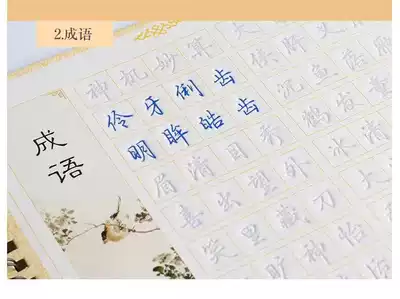 2.成语
成语
神机妙算
伶牙俐齿
明眸皓齿 沉鱼落
眉清目秀 鹤发
喜出望外 冰清
笑里藏刀 大
旷神怡